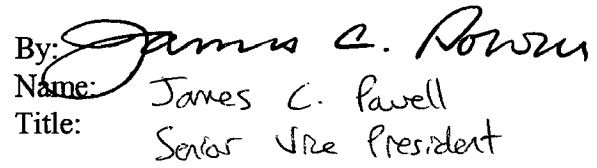 By: James C. Powell
Name: James C. Powell
Title: Senior Vice President